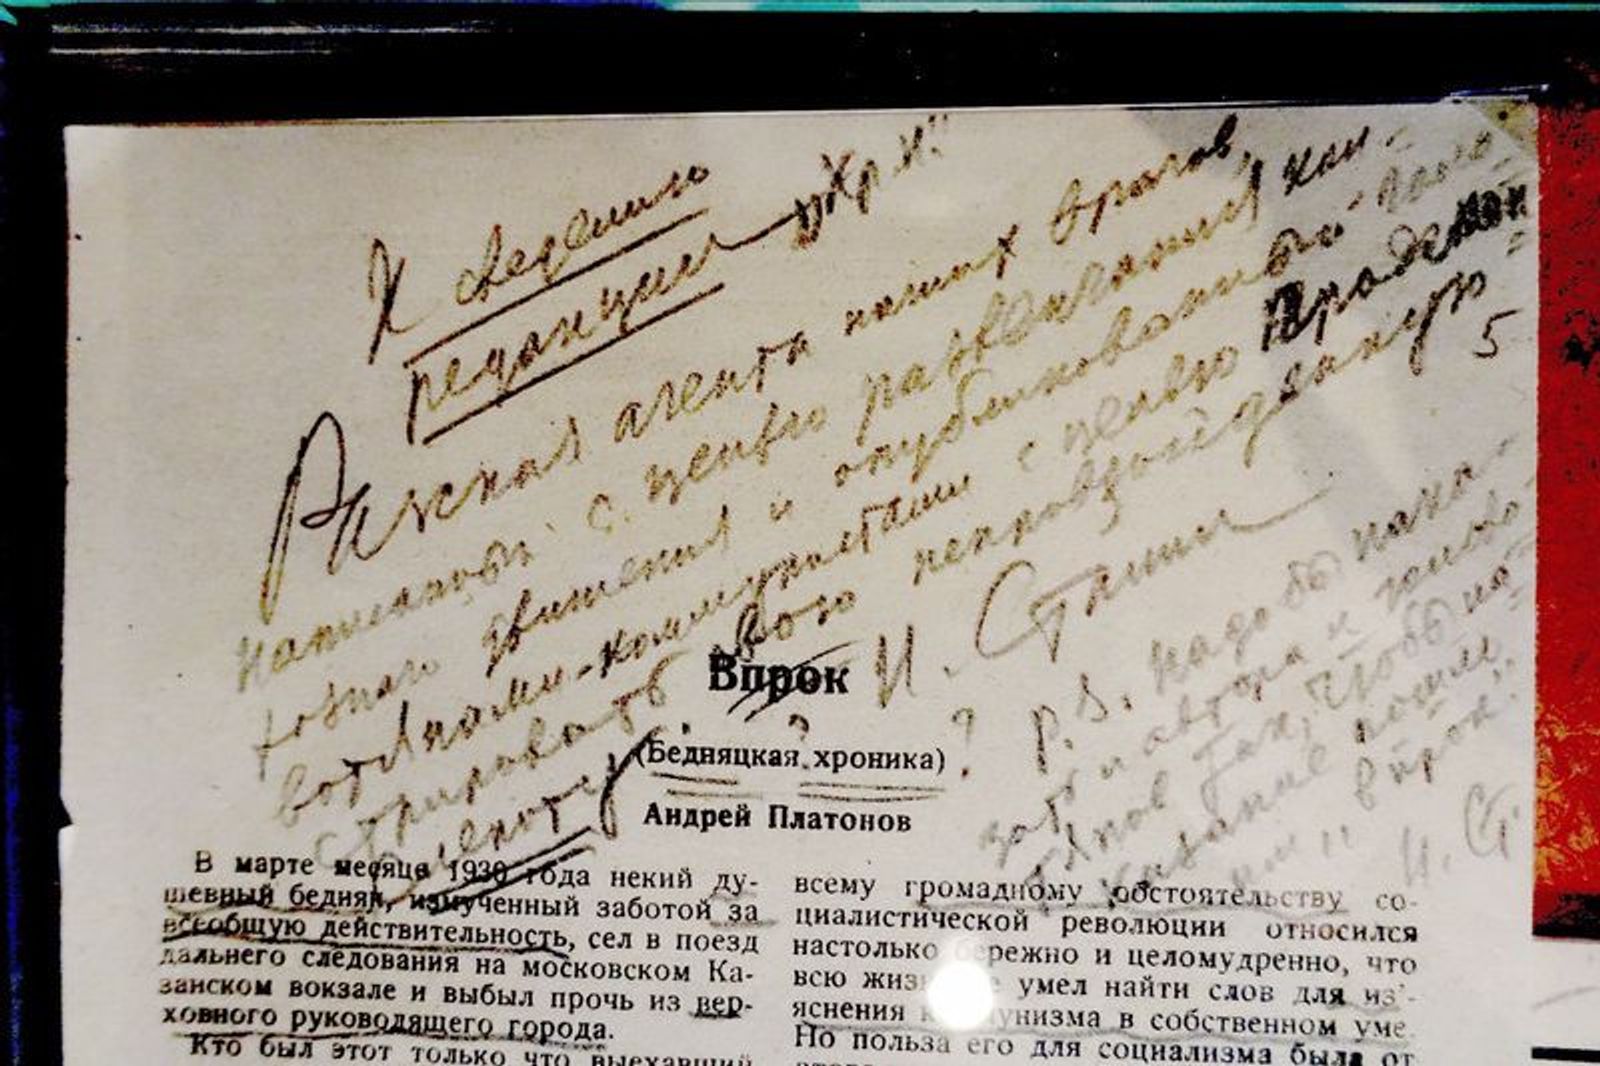 К сведению
редакции "Кр.н."
Рассказ агента наших врагов,
написанный с целью развенчания кол-
хозного движения и опубликованный голо-
вотяпами-коммунистами с целью продемон-
стрировать свою непревзойденную
слепоту.
И. Сталин
5
P.S. Надо бы нака-
зать и автора и головотя-
пов так, чтобы на-
казание пошло
им "впрок".
И. Ст.
Впрок
? ?
(Бедняцкая хроника)
Андрей Платонов
В марте месяце 1930 года некий ду-
шевный бедняк, измученный заботой за
всеобщую действительность, сел в поезд
дальнего следования на московском Ка-
занском вокзале и выбыл прочь из вер-
ховного руководящего города.
Кто был этот только что выехавший
всему громадному обстоятельству со-
циалистической революции относился
настолько бережно и целомудренно, что
всю не умел найти слов для из'-
яснения коммунизма в собственном уме.
Но польза его для социализма была от